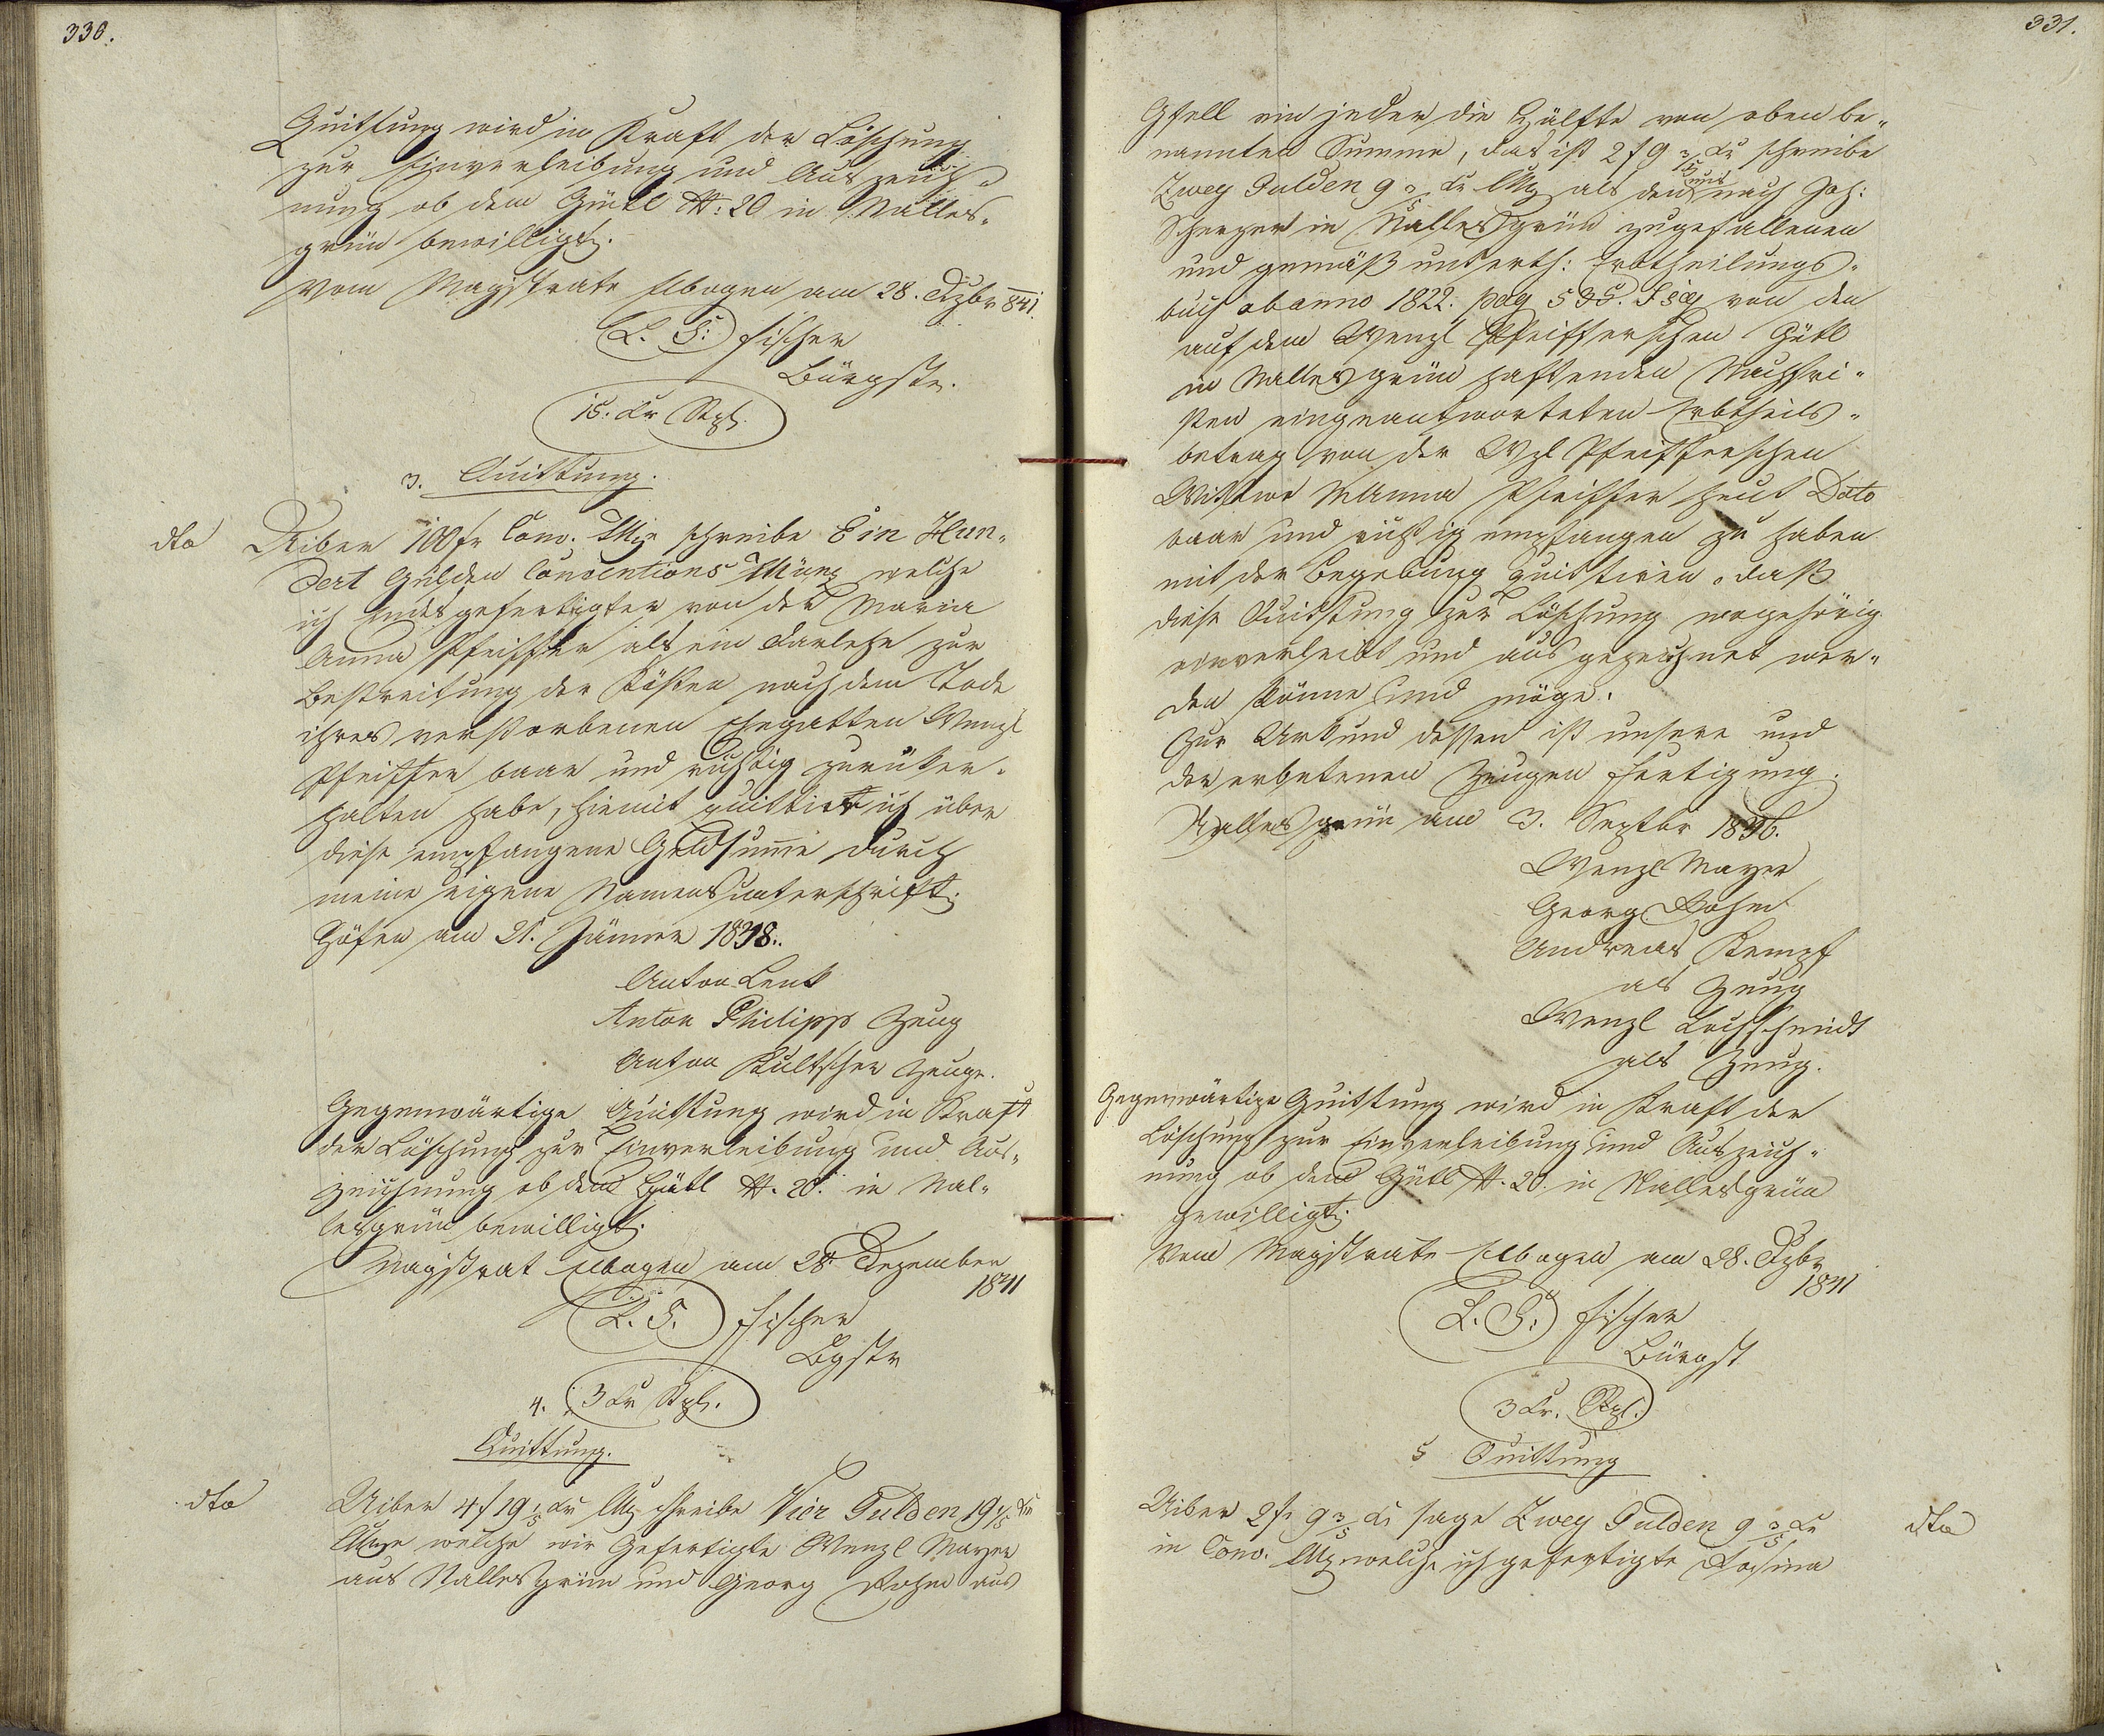 330.
Quittung wird in Kraft der Löschung
zur Einverleibung und Auszeich„
nung ob dem Gütl N: 20 in Nalles„
grün bewilligt.
Vom Magistrate Elbogen am 28. Dzbr 841.
L. S. Fischer
Bürgstr.
15. Kr Stpl.
3. Quittung.
dto
Uiber 100 fr Conv. Mze schreibe Ein Hun„
dert Gulden Conventions Münz welche
ich Endesgefertigter von der Maria
Anna Pfeiffer als ein Darlehn zur
Bestreitung der Kösten nach dem Tode
ihres verstorbenen Ehegatten Wenzl
Pfeiffer baar und richtig zurüker„
halten habe, hiemit quittire ich über
diese empfangene Geldsume durch
meine eigene Namensunterschrift.
Höfen am 21. Jänner 1838.
Anton Lenk
Anton Philipp Zeug
Anton Kultscher Zeuge.
Gegenwärtige Quittung wird in Kraft
der Löschung zur Einverleibung und Aus„
zeichnung ob dem Gütl N. 20. in Nal„
lesgrün bewilligt.
Magistrat Elbogen am 28 Dezember
1841
L. S. Fischer
Bgstr
4. 3 Kr Stpl.
Quittung.
dto
Uiber 4 f 19 1/5 Kr CMz schreibe Vier Gulden 19 1/5 Kr
CMze welche wir Gefertigte Wenzl Mayer
aus Nallesgrün und Georg Bohm aus
331.
Gsell ein jeder die Hälfte von oben be„
nannten Summe, das ist 2 f 9 3/5 Kr schreibe
Zwey Gulden 9 3/5 Kr CMz als den uns nach Joh:
in Nallesgrün zugefallenen
und gemäß unterth: Erbtheilungs„
buch ab anno 1822. pag 535. von den
auf dem Wenzl Pfeifferschen Gütl
in Nallesgrün haftenden Nachfri„
sten eingeantworteten Erbtheils„
betrag von der Wzl Pfeifferschen
Wittwe MAnna Pfeiffer heut Dato
baar und richtig empfangen zu haben
mit der Begebung quittiren, daß
diese Quittung zur Löschung wogehörig
einverleibt und ausgezeichnet wer„
den könne und möge.
Zur Urkund dessen ist unsere und
der erbetenen Zeugen Fertigung.
Nallesgrün am 3. Septbr 1836.
Wenzl Mayer
Georg Bohm
Andreas Kempf
als Zeug
Wenzl Lochschmidt
als Zeug.
Gegenwärtige Quittung wird in Kraft der
Löschung zur Einverleibung und Auszeich„
nung ob dem Gütl N. 20. in Nallesgrün
gewilligt.
Vom Magistrate Elbogen am 28. Dzbr
1841
L. S. Fischer
Bürgst
3 Kr. Stpl.
5 Quittung
dto
Uiber 2 fr 9 3/5 Kr sage Zwey Gulden 9 3/5 Kr
in Conv. Mz welche ich gefertigte Rosina